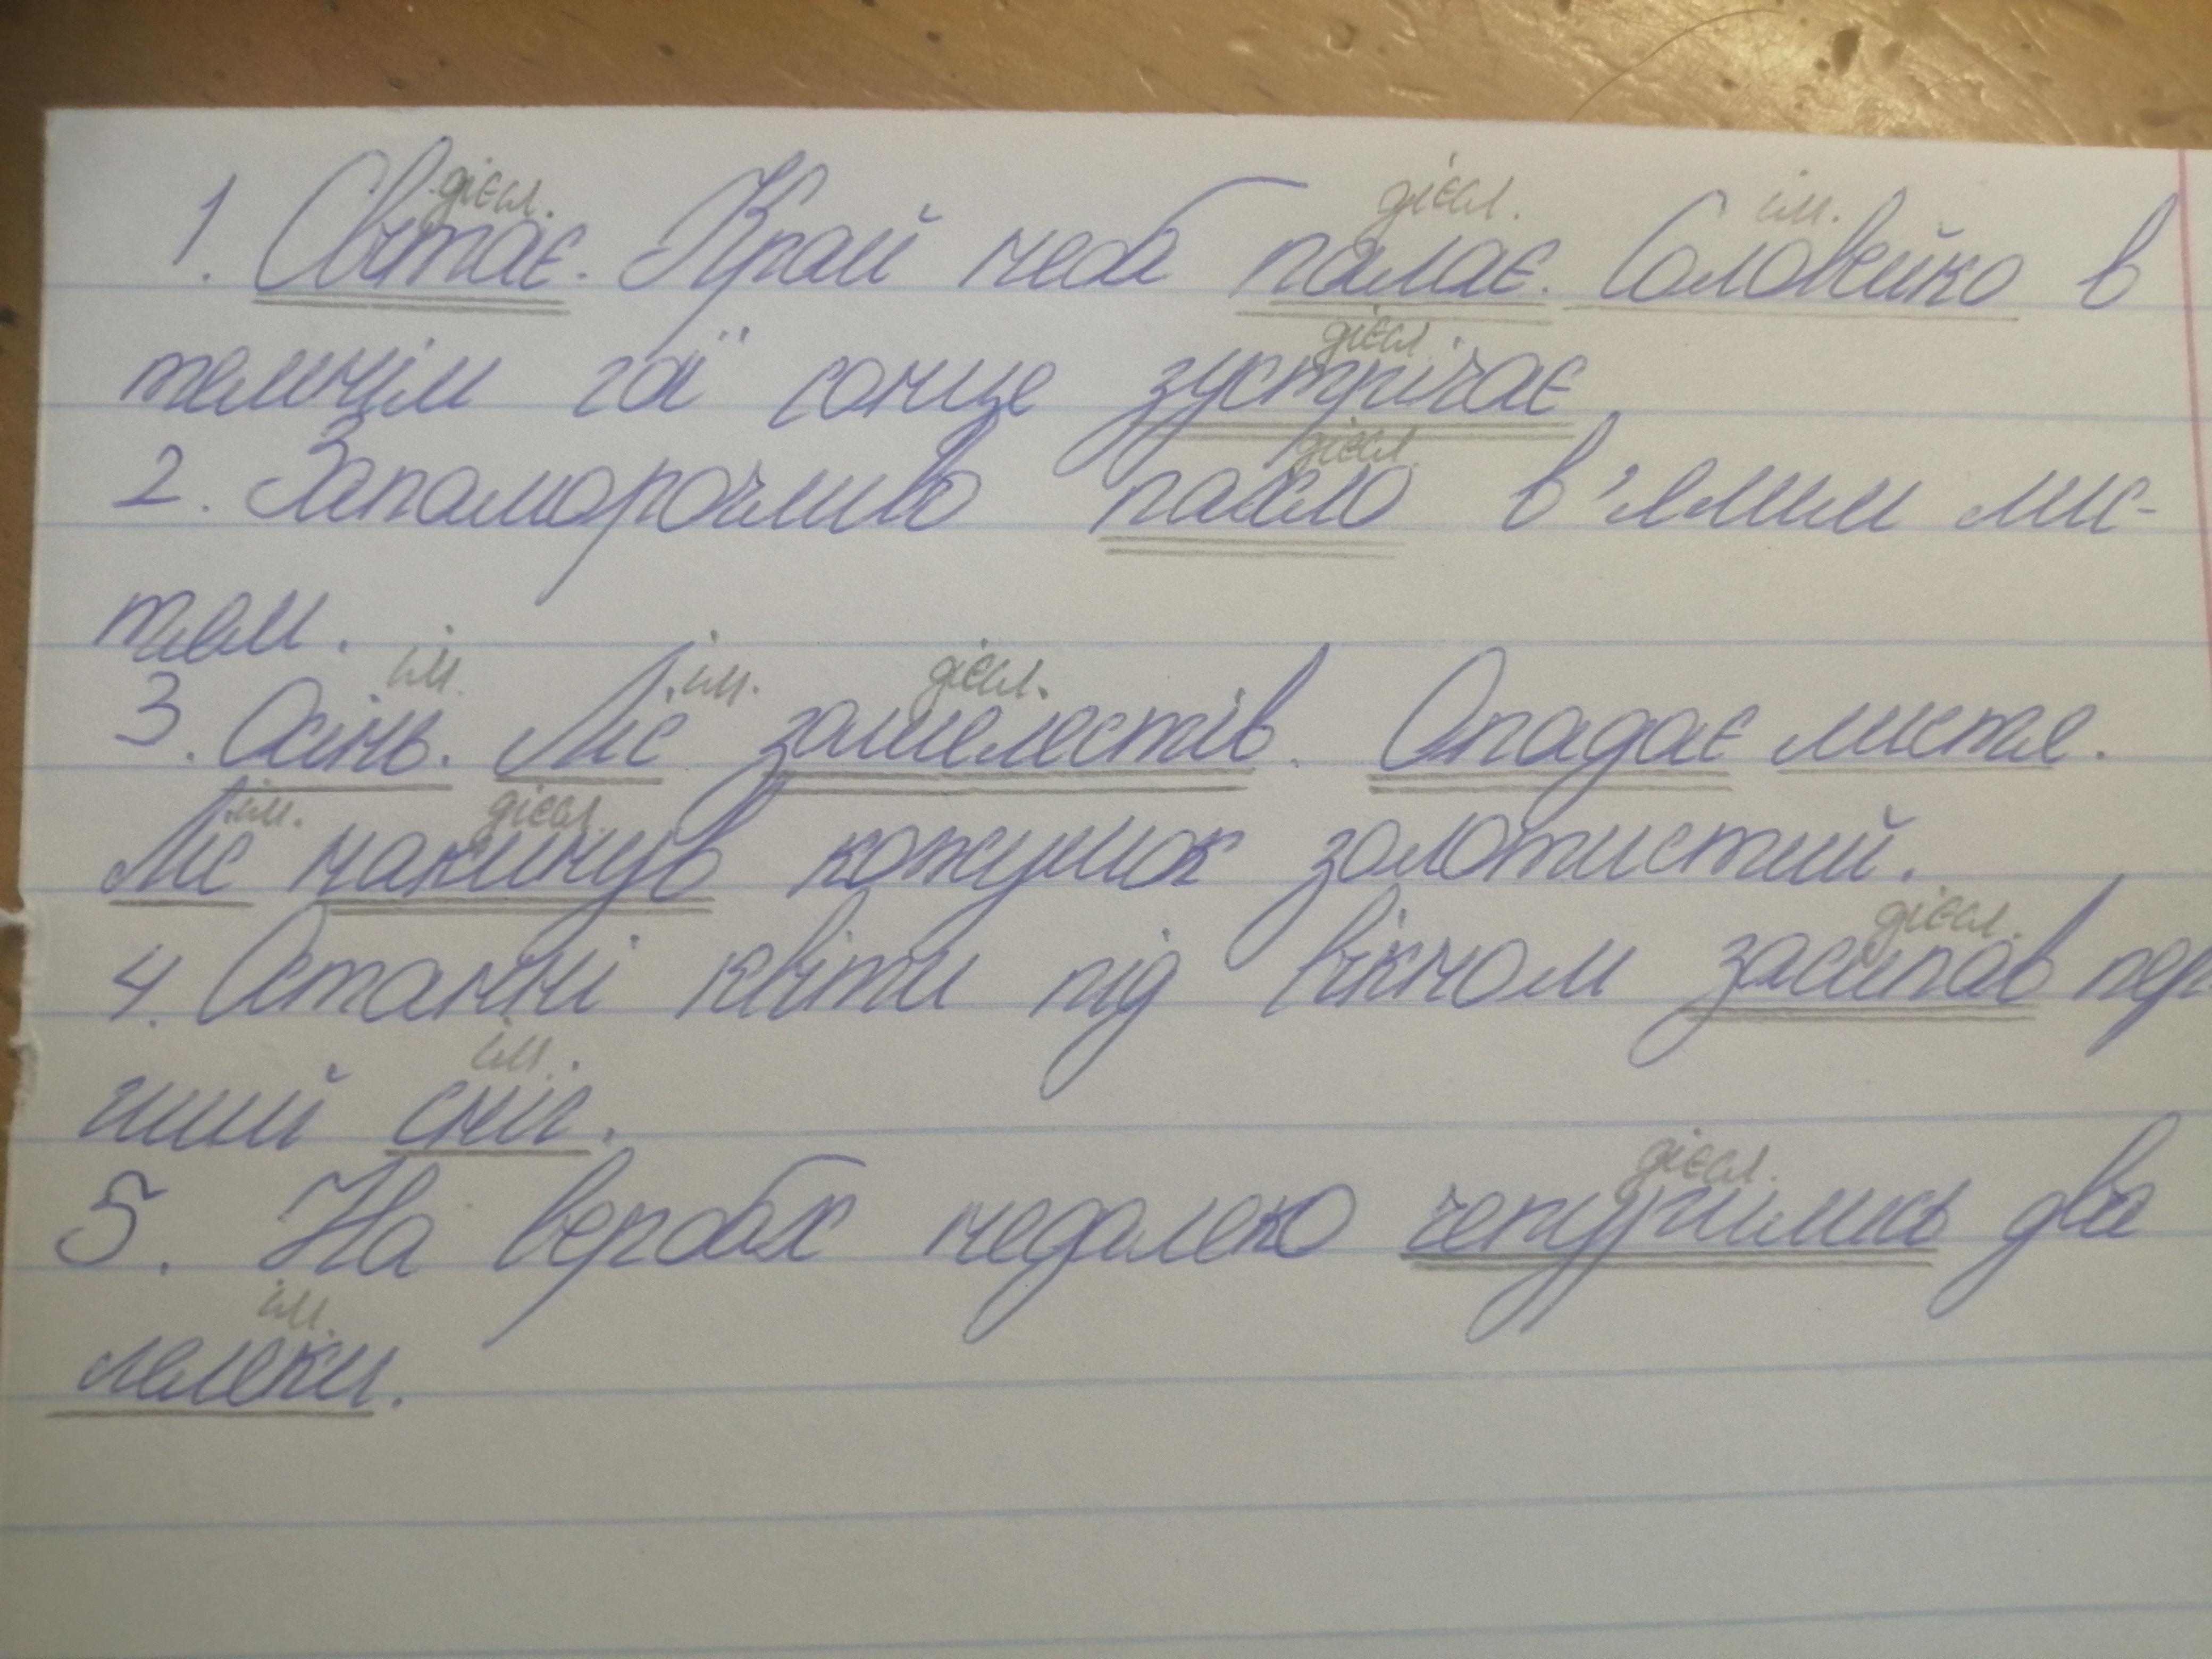 дієсл. дієсл. ім.
1. Світає. Край неба палає. Соловейко в
дієсл.
темнім гаї сонце зустрічає.
дієсл.
2. Запаморочливо пахло в'ялим лис-
тям.
ім. ім. дієсл.
3. Осінь. Ліс зашелестів. Опадає листя.
ім. дієсл.
Ліс накинув кожушок золотистий.
дієсл.
4. Останні квіти під вікном засипав пер-
ім.
ший сніг.
дієсл.
5. На вербах недалеко чепурились два
ім.
лелеки.